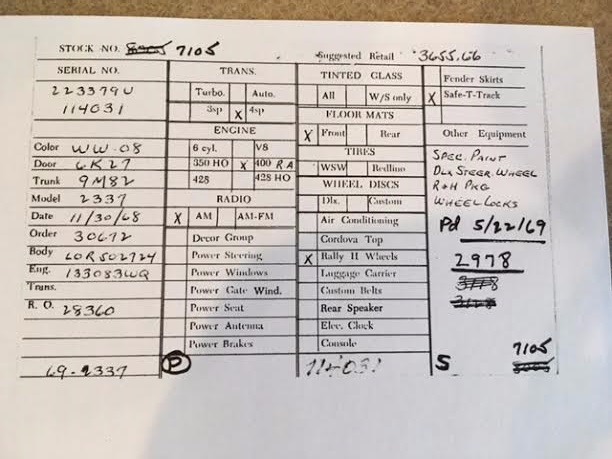 STOCK NO. 7105
Suggested Retail 3655.66
SERIAL NO.
223379U
114031
Color WW-08
Door 6K27
Trunk 9M82
Model 2337
Date 11/30/68
Order 30672
Body LOR502724
Eng. 133083WQ
Trans.
R. O. 28360
69-2337
TRANS.
Turbo. Auto.
3sp X 4sp
ENGINE
6 cyl. V8
350 HO X 400 RA
428 428 HO
RADIO
X AM AM-FM
Decor Group
Power Steering
Power Windows
Power Gate Wind.
Power Seat
Power Antenna
Power Brakes
P
TINTED GLASS
All W/S only
FLOOR MATS
X Front Rear
TIRES
WSW Redline
WHEEL DISCS
Dlx. Custom
Air Conditioning
Cordova Top
X Rally II Wheels
Luggage Carrier
Custom Belts
Rear Speaker
Elec. Clock
Console
114031
Fender Skirts
X Safe-T-Track
Other Equipment
SPEC. PAINT
DLX STEER. WHEEL
R&H PKG
WHEEL LOCKS
Pd 5/22/69
2978
7105
S